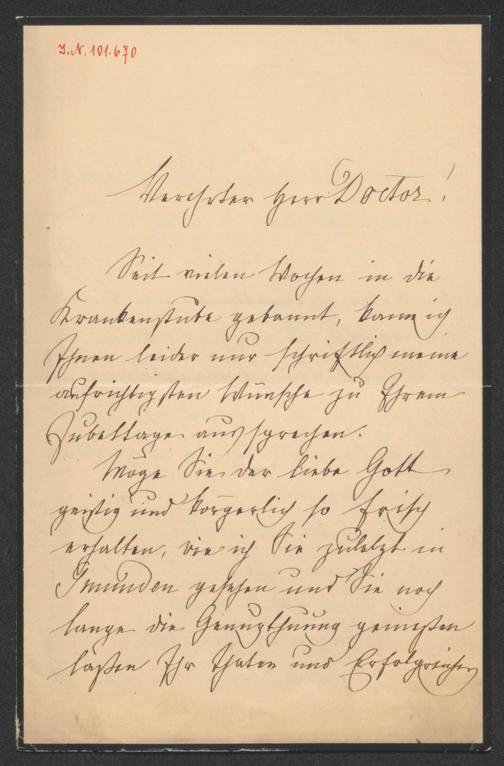 J.N. 101.670
Verehrter Herr Doctor!
Seit vielen Wochen in die
Krankenstube gebannt, kann ich
Ihnen leider nur schriftlich meine
aufrichtigsten Wünsche zu Ihrem
Jubeltage aussprechen.
Möge Sie der liebe Gott
geistig und körperlich so frisch
erhalten, wie ich Sie zuletzt in
Gmunden gesehen und Sie noch
lange die Genugthuung genießen
laßen Ihr Thaten und Erfolgreiches